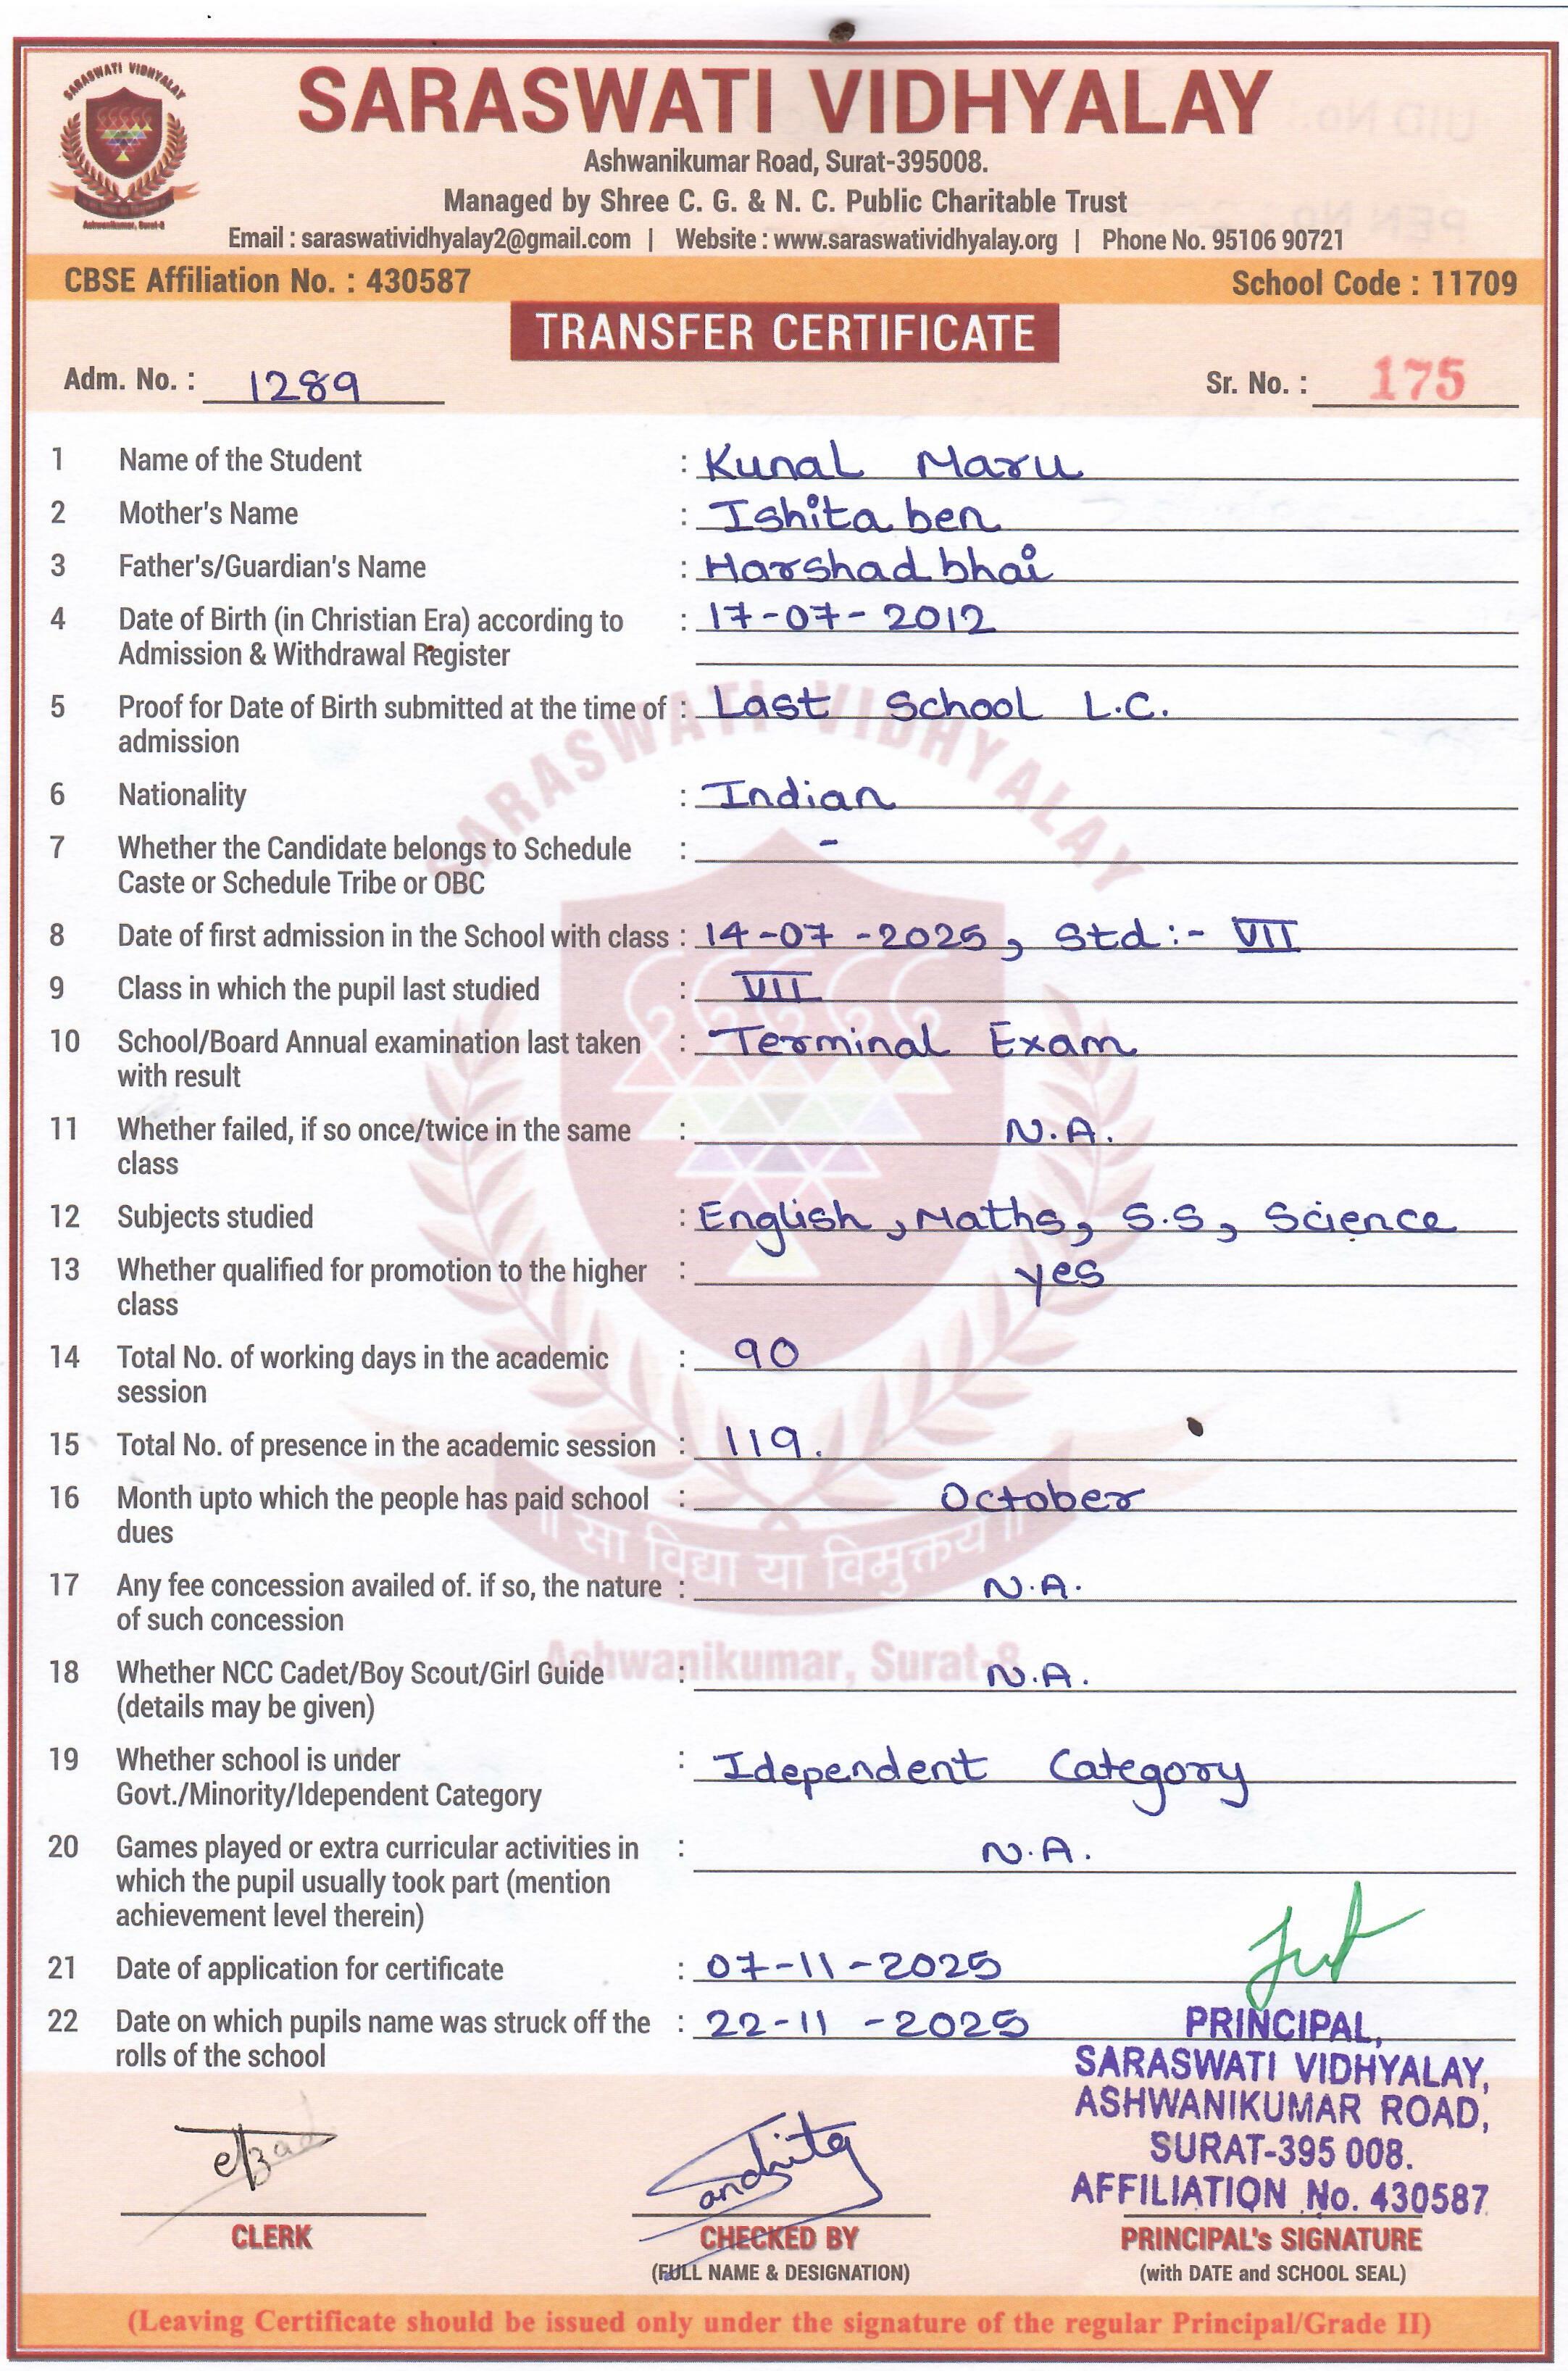 SARASWATI VIDHYALAY
Ashwanikumar, Surat-8
SARASWATI VIDHYALAY
Ashwanikumar Road, Surat-395008.
Managed by Shree C. G. & N. C. Public Charitable Trust
Email : saraswatividhyalay2@gmail.com | Website : www.saraswatividhyalay.org | Phone No. 95106 90721
CBSE Affiliation No. : 430587 School Code : 11709
TRANSFER CERTIFICATE
Adm. No. : 1289 Sr. No. : 175
1 Name of the Student : Kunal Maru
2 Mother's Name : Ishitaben
3 Father's/Guardian's Name : Harshadbhai
4 Date of Birth (in Christian Era) according to : 17-07-2012
Admission & Withdrawal Register
5 Proof for Date of Birth submitted at the time of : Last School L.C.
admission
6 Nationality : Indian
7 Whether the Candidate belongs to Schedule : -
Caste or Schedule Tribe or OBC
8 Date of first admission in the School with class : 14-07-2025, Std:- VII
9 Class in which the pupil last studied : VII
10 School/Board Annual examination last taken : Terminal Exam
with result
11 Whether failed, if so once/twice in the same : N.A.
class
12 Subjects studied : English, Maths, S.S, Science
13 Whether qualified for promotion to the higher : yes
class
14 Total No. of working days in the academic : 90
session
15 Total No. of presence in the academic session : 119.
16 Month upto which the people has paid school : October
dues
17 Any fee concession availed of. if so, the nature : N.A.
of such concession
18 Whether NCC Cadet/Boy Scout/Girl Guide : N.A.
(details may be given)
19 Whether school is under : Idependent Category
Govt./Minority/Idependent Category
20 Games played or extra curricular activities in : N.A.
which the pupil usually took part (mention
achievement level therein)
21 Date of application for certificate : 07-11-2025
22 Date on which pupils name was struck off the : 22-11-2025
rolls of the school
SARASWATI VIDHYALAY
॥ सा विद्या या विमुक्तये ॥
Ashwanikumar, Surat-8
PRINCIPAL,
SARASWATI VIDHYALAY,
ASHWANIKUMAR ROAD,
SURAT-395 008.
AFFILIATION No. 430587
CLERK CHECKED BY PRINCIPAL's SIGNATURE
(FULL NAME & DESIGNATION) (with DATE and SCHOOL SEAL)
(Leaving Certificate should be issued only under the signature of the regular Principal/Grade II)